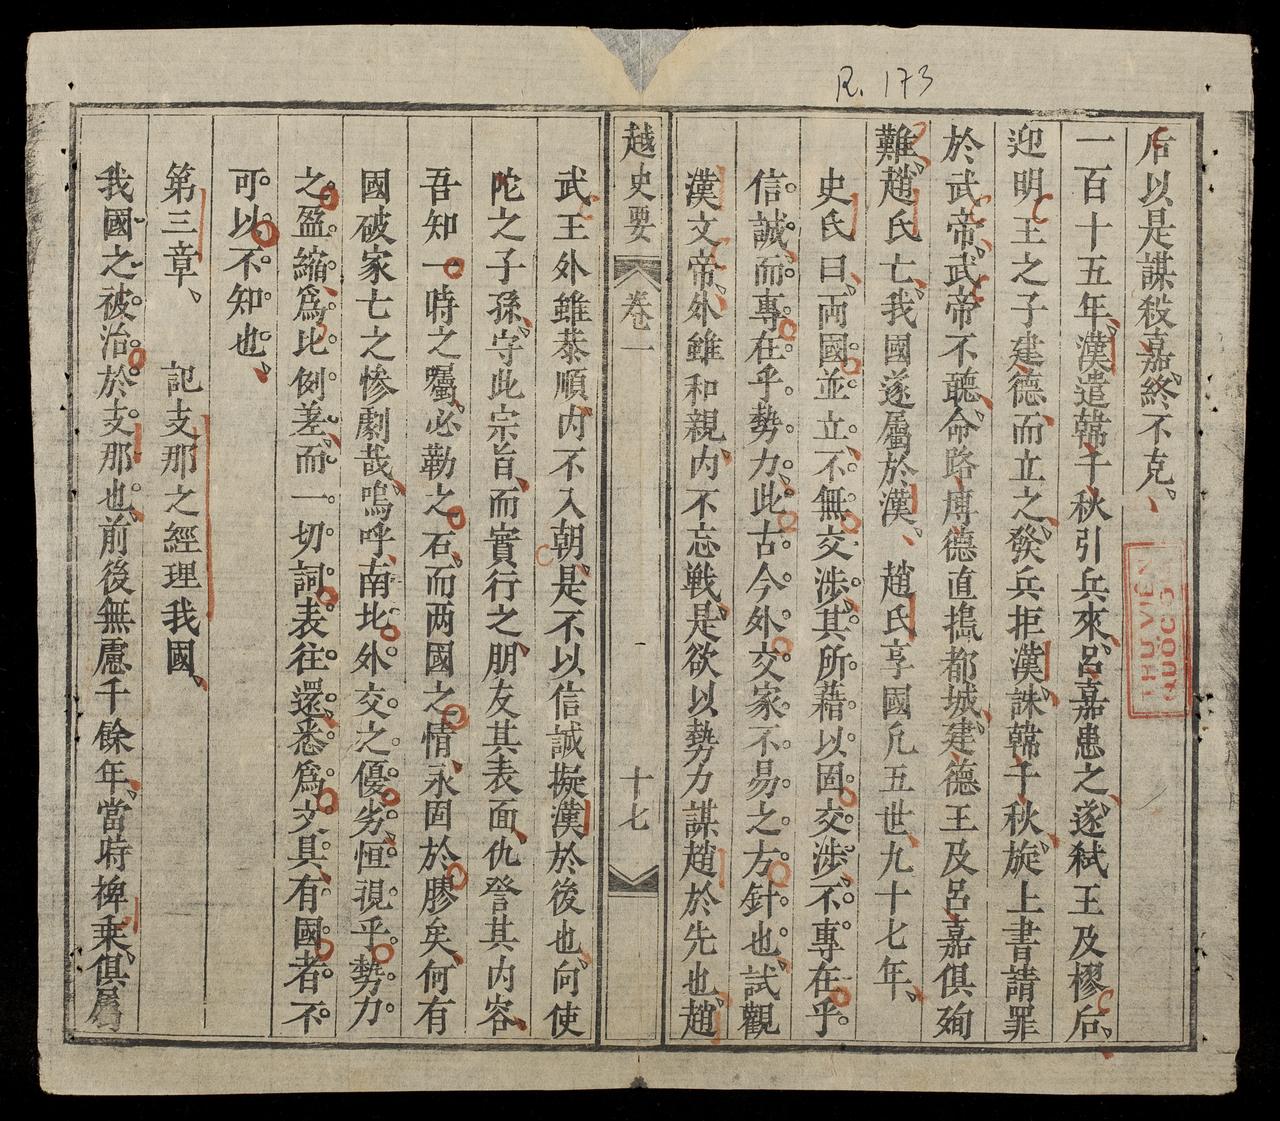 R. 173
后以是謀殺嘉、終不克。
一百十五年、漢遣韓千秋引兵來、呂嘉患之、遂弑王及樛后、
迎明王之子建德、而立之、發兵拒漢、誅韓千秋、旋上書請罪
於武帝、武帝不聽、命路博德直搗都城、建德王及呂嘉俱殉
難、趙氏亡、我國遂屬於漢、趙氏享國凢五世、九十七年、
史氏曰、両國並立、不無交涉、其所藉以固交涉、不專在乎
信誠、而專在乎勢力、此古今外交家不易之方針也、試觀
漢文帝、外雖和親、内不忘戰、是欲以勢力謀趙於先也、趙
越史要 卷一 十七
武王外雖恭順、内不入朝、是不以信誠擬漢於後也、向使
陀之子孫、守此宗旨、而實行之、朋友其表面、仇讐其内容、
吾知一時之囑、必勒之石、而两國之情、永固於膠矣、何有
國破家亡之慘劇哉、嗚呼、南北外交之優劣、恒現乎勢力
之盈縮、爲比例差、而一切詞表往還、悉爲文具、有國者、不
可以不知也、
第三章、 記支那之經理我國、
我國之被治於支那也、前後無慮千餘年、當時裨乗、俱屬
THƯ VIỆN
QUỐC G